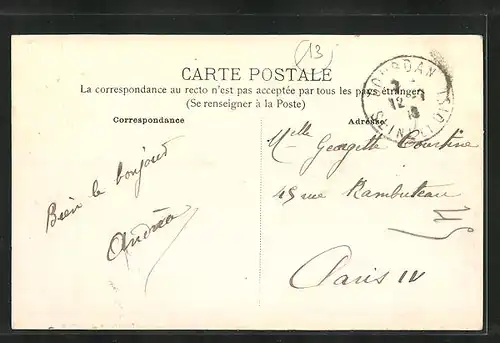 (13)
CARTE POSTALE
La correspondance au recto n'est pas acceptée par tous les pays étrangers
(Se renseigner à la Poste)
Correspondance
Adresse
DOURDAN
12
Bien le bonjour
Andréa
Melle Georgette Courtine
45 rue Rambuteau
Paris IV